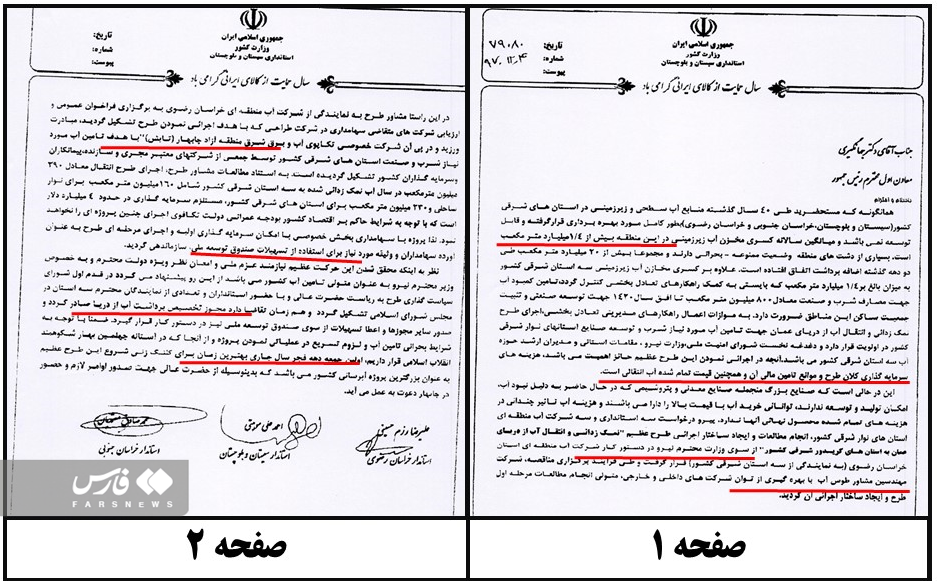 جمهوری اسلامی ایران
وزارت کشور
استانداری سیستان و بلوچستان
تاریخ:
شماره:
پیوست:
۷۹۰۸۰
۹۷،۱۲،۴
سال حمایت از کالای ایرانی گرامی باد
جناب آقای دکتر جهانگیری
معاون اول محترم رئیس جمهور
با سلام و احترام
همانگونه که مستحضرید طی ۴۰ سال گذشته منابع آب سطحی و زیرزمینی در استان های شرقی
کشور(سیستان و بلوچستان،خراسان جنوبی و خراسان رضوی)بطور کامل مورد بهره برداری قرارگرفته و قابل
توسعه نمی باشد و میانگین سالانه کسری مخزن آب زیرزمینی در این منطقه بیش از ۱/۴میلیارد متر مکعب
است. بسیاری از دشت های منطقه وضعیت ممنوعه - بحرانی دارند و مجموعا بیش از ۲۰ میلیارد متر مکعب طی
دو دهه گذشته اضافه برداشت اتفاق افتاده است. علاوه بر کسری مخازن آب زیرزمینی سه استان شرقی
به میزان بالغ بر۱/۴ میلیارد متر مکعب که بایستی به کمک راهکارهای تعادل بخشی کنترل گردد،تامین کمبود آب
جهت مصارف شرب و صنعت معادل ۸۰۰ میلیون متر مکعب تا افق سال ۱۴۲۰ جهت توسعه صنعتی و تثبیت
جمعیت ساکن این مناطق ضرورت دارد. به موازات اعمال راهکارهای مدیریتی تعادل بخشی،اجرای طرح
نمک زدائی و انتقال آب از دریای عمان جهت تامین آب مورد نیاز شرب و توسعه صنایع استانهای نوار شرقی
کشور در اولویت قرار دارد و دغدغه نخست شورای امنیت ملی،وزارت نیرو ، مقامات استانی و مدیران ارشد حوزه
آب سه استان شرقی کشور می باشد.آنچه در اجرائی نمودن این طرح عظیم حائز اهمیت می باشد، هزینه های
سرمایه گذاری کلان طرح و موانع تامین مالی آن و همچنین قیمت تمام شده آب انتقالی است.
این در حالی است که صنایع بزرگ منجمله صنایع معدنی و پتروشیمی که در حال حاضر به دلیل نبود آب،
امکان تولید و توسعه ندارند، توانائی خرید آب با قیمت بالا را دارا می باشند و هزینه آب تاثیر چندانی در
هزینه های تمام شده محصول نهائی آنها ندارد. پیرو درخواست سه استانداری و سه شرکت آب منطقه ای
استان های نوار شرقی کشور، انجام مطالعات و ایجاد ساختار اجرائی طرح عظیم "نمک زدائی و انتقال آب از دریای
عمان به استان های کریدور شرقی کشور" از سوی وزارت محترم نیرو در دستور کار شرکت آب منطقه ای استان
خراسان رضوی (به نمایندگی از سه استان شرقی کشور) قرار گرفت و طی فرآیند برگزاری مناقصه، شرکت
مهندسین مشاور طوس آب با بهره گیری از توان شرکت های داخلی و خارجی، متولی انجام مطالعات مرحله اول
طرح و ایجاد ساختار اجرائی آن گردید.
صفحه ۱
جمهوری اسلامی ایران
وزارت کشور
استانداری سیستان و بلوچستان
تاریخ:
شماره:
پیوست:
سال حمایت از کالای ایرانی گرامی باد
در این راستا مشاور طرح به نمایندگی از شرکت آب منطقه ای خراسان رضوی به برگزاری فراخوان عمومی و
ارزیابی شرکت های متقاضی سهامداری در شرکت طراحی که با هدف اجرائی نمودن طرح تشکیل گردید، مبادرت
ورزید و در پی آن شرکت خصوصی تکاپوی آب و برق شرق منطقه آزاد چابهار (تابش)"با هدف تامین آب مورد
نیاز شرب و صنعت استان های شرقی کشور توسط جمعی از شرکتهای معتبر مجری و سازنده،پیمانکاران
وسرمایه گذاران کشور تشکیل گردیده است. به استناد مطالعات مشاور طرح، اجرای طرح انتقال معادل ۳۹۰
میلیون مترمکعب در سال آب نمک زدائی شده به سه استان شرقی کشور شامل ۱۶۰میلیون متر مکعب برای نوار
ساحلی و۲۳۰ میلیون متر مکعب برای استان های شرقی کشور، مستلزم سرمایه گذاری در حدود ۴ میلیارد دلار
است که با توجه به شرایط حاکم بر اقتصاد کشور بودجه عمرانی دولت تکافوی اجرای چنین پروژه ای را نخواهد
نمود. لذا پروژه با سهامداری بخش خصوصی با امکان سرمایه گذاری اولیه و اجرای مرحله ای طرح به عنوان
آورده سهامداران و وثیقه مورد نیاز برای استفاده از تسهیلات صندوق توسعه ملی، سازماندهی گردید.
نظر به اینکه محقق شدن این حرکت عظیم نیازمند عزم ملی و امعان نظر ویژه دولت محترم و به خصوص
وزیر محترم نیرو به عنوان متولی تامین آب کشور می باشد از این رو پیشنهاد می گردد در قدم اول شورای
سیاست گذاری طرح به ریاست حضرت عالی و با حضور استانداران و تعدادی از نمایندگان محترم سه استان در
مجلس شورای اسلامی تشکیل گردد و هم زمان تقاضا دارد مجوز تخصیص برداشت آب از دریا صادر گردد و
صدور سایر مجوزها و اعطا تسهیلات از سوی صندوق توسعه ملی نیز در دستور کار قرار گیرد. ضمنا با توجه به
شرایط بحرانی تامین آب و لزوم تسریع در عملیاتی نمودن پروژه و از آنجا که در آستانه چهلمین بهار شکوهمند
انقلاب اسلامی قرار داریم، اولین جمعه دهه فجر سال جاری بهترین زمان برای کلنگ زنی شروع این طرح عظیم
به عنوان بزرگترین پروژه آبرسانی کشور می باشد که بدینوسیله از حضرت عالی جهت صدور اوامر لازم و حضور
در چابهار دعوت به عمل می آید.
علیرضا رزم حسینی
استاندار خراسان رضوی
احمد علی موهبتی
استاندار سیستان و بلوچستان
محمد صادق معتمدیان
استاندار خراسان جنوبی
فارس
FARSNEWS
صفحه ۲